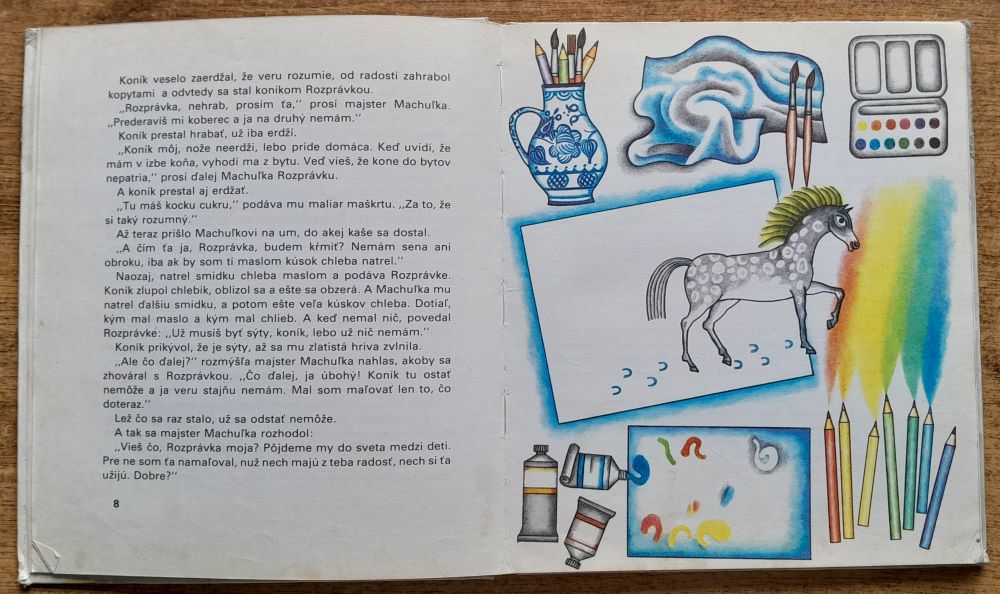 Koník veselo zaerdžal, že veru rozumie, od radosti zahrabol
kopytami a odvtedy sa stal koníkom Rozprávkou.
„Rozprávka, nehrab, prosím ťa,“ prosí majster Machuľka.
„Prederavíš mi koberec a ja na druhý nemám.“
Koník prestal hrabať, už iba erdží.
„Koník môj, nože neerdži, lebo príde domáca. Keď uvidí, že
mám v izbe koňa, vyhodí ma z bytu. Veď vieš, že kone do bytov
nepatria,“ prosí ďalej Machuľka Rozprávku.
A koník prestal aj erdžať.
„Tu máš kocku cukru,“ podáva mu maliar maškrtu. „Za to, že
si taký rozumný.“
Až teraz prišlo Machuľkovi na um, do akej kaše sa dostal.
„A čím ťa ja, Rozprávka, budem kŕmiť? Nemám sena ani
obroku, iba ak by som ti maslom kúsok chleba natrel.“
Naozaj, natrel smidku chleba maslom a podáva Rozprávke.
Koník zlupol chlebík, oblizol sa a ešte sa obzerá. A Machuľka mu
natrel ďalšiu smidku, a potom ešte veľa kúskov chleba. Dotiaľ,
kým mal maslo a kým mal chlieb. A keď nemal nič, povedal
Rozprávke: „Už musíš byť sýty, koník, lebo už nič nemám.“
Koník prikývol, že je sýty, až sa mu zlatistá hriva zvlnila.
„Ale čo ďalej?“ rozmýšľa majster Machuľka nahlas, akoby sa
zhováral s Rozprávkou. „Čo ďalej, ja úbohý! Koník tu ostať
nemôže a ja veru stajňu nemám. Mal som maľovať len to, čo
doteraz.“
Lež čo sa raz stalo, už sa odstať nemôže.
A tak sa majster Machuľka rozhodol:
„Vieš čo, Rozprávka moja? Pôjdeme my do sveta medzi deti.
Pre ne som ťa namaľoval, nuž nech majú z teba radosť, nech si ťa
užijú. Dobre?“
8